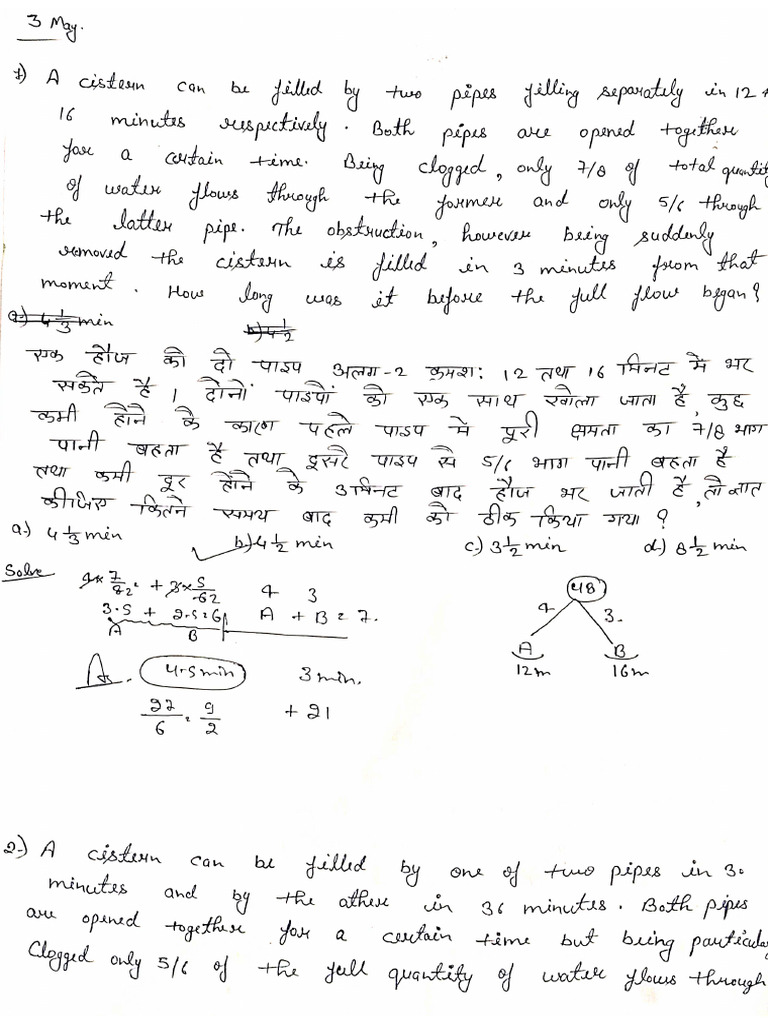 3 May.
1) A cistern can be filled by two pipes filling separately in 12 &
16 minutes respectively. Both pipes are opened together
for a certain time. Being clogged, only 7/8 of total quantity
of water flows through the former and only 5/6 through
the latter pipe. The obstruction, however being suddenly
removed the cistern is filled in 3 minutes from that
moment. How long was it before the full flow began?
a) 4 1/3 min b) 4 1/2
एक हौज को दो पाइप अलग-2 क्रमश: 12 तथा 16 मिनट में भर
सकते है । दोनों पाइपों को एक साथ खोला जाता है, कुछ
कमी होने के कारण पहले पाइप में पूरी क्षमता का 7/8 भाग
पानी बहता है तथा दूसरे पाइप से 5/6 भाग पानी बहता है
तथा कमी दूर होने के 3 मिनट बाद हौज भर जाती है, तो ज्ञात
कीजिए कितने समय बाद कमी को ठीक किया गया ?
a.) 4 1/3 min b.) 4 1/2 min c.) 3 1/2 min d.) 8 1/2 min
Solve 4 × 7/82 + 3 × 5/62 4 3 48
3.5 + 2.5 = 6 A + B = 7. 4 3.
A B A B
12m 16m
A. 4.5 min 3 min.
27/6 = 9/2 + 21
2.) A cistern can be filled by one of two pipes in 30
minutes and by the othere in 36 minutes. Both pipes
are opened together for a certain time but being particular
Clogged only 5/6 of the full quantity of water flows through